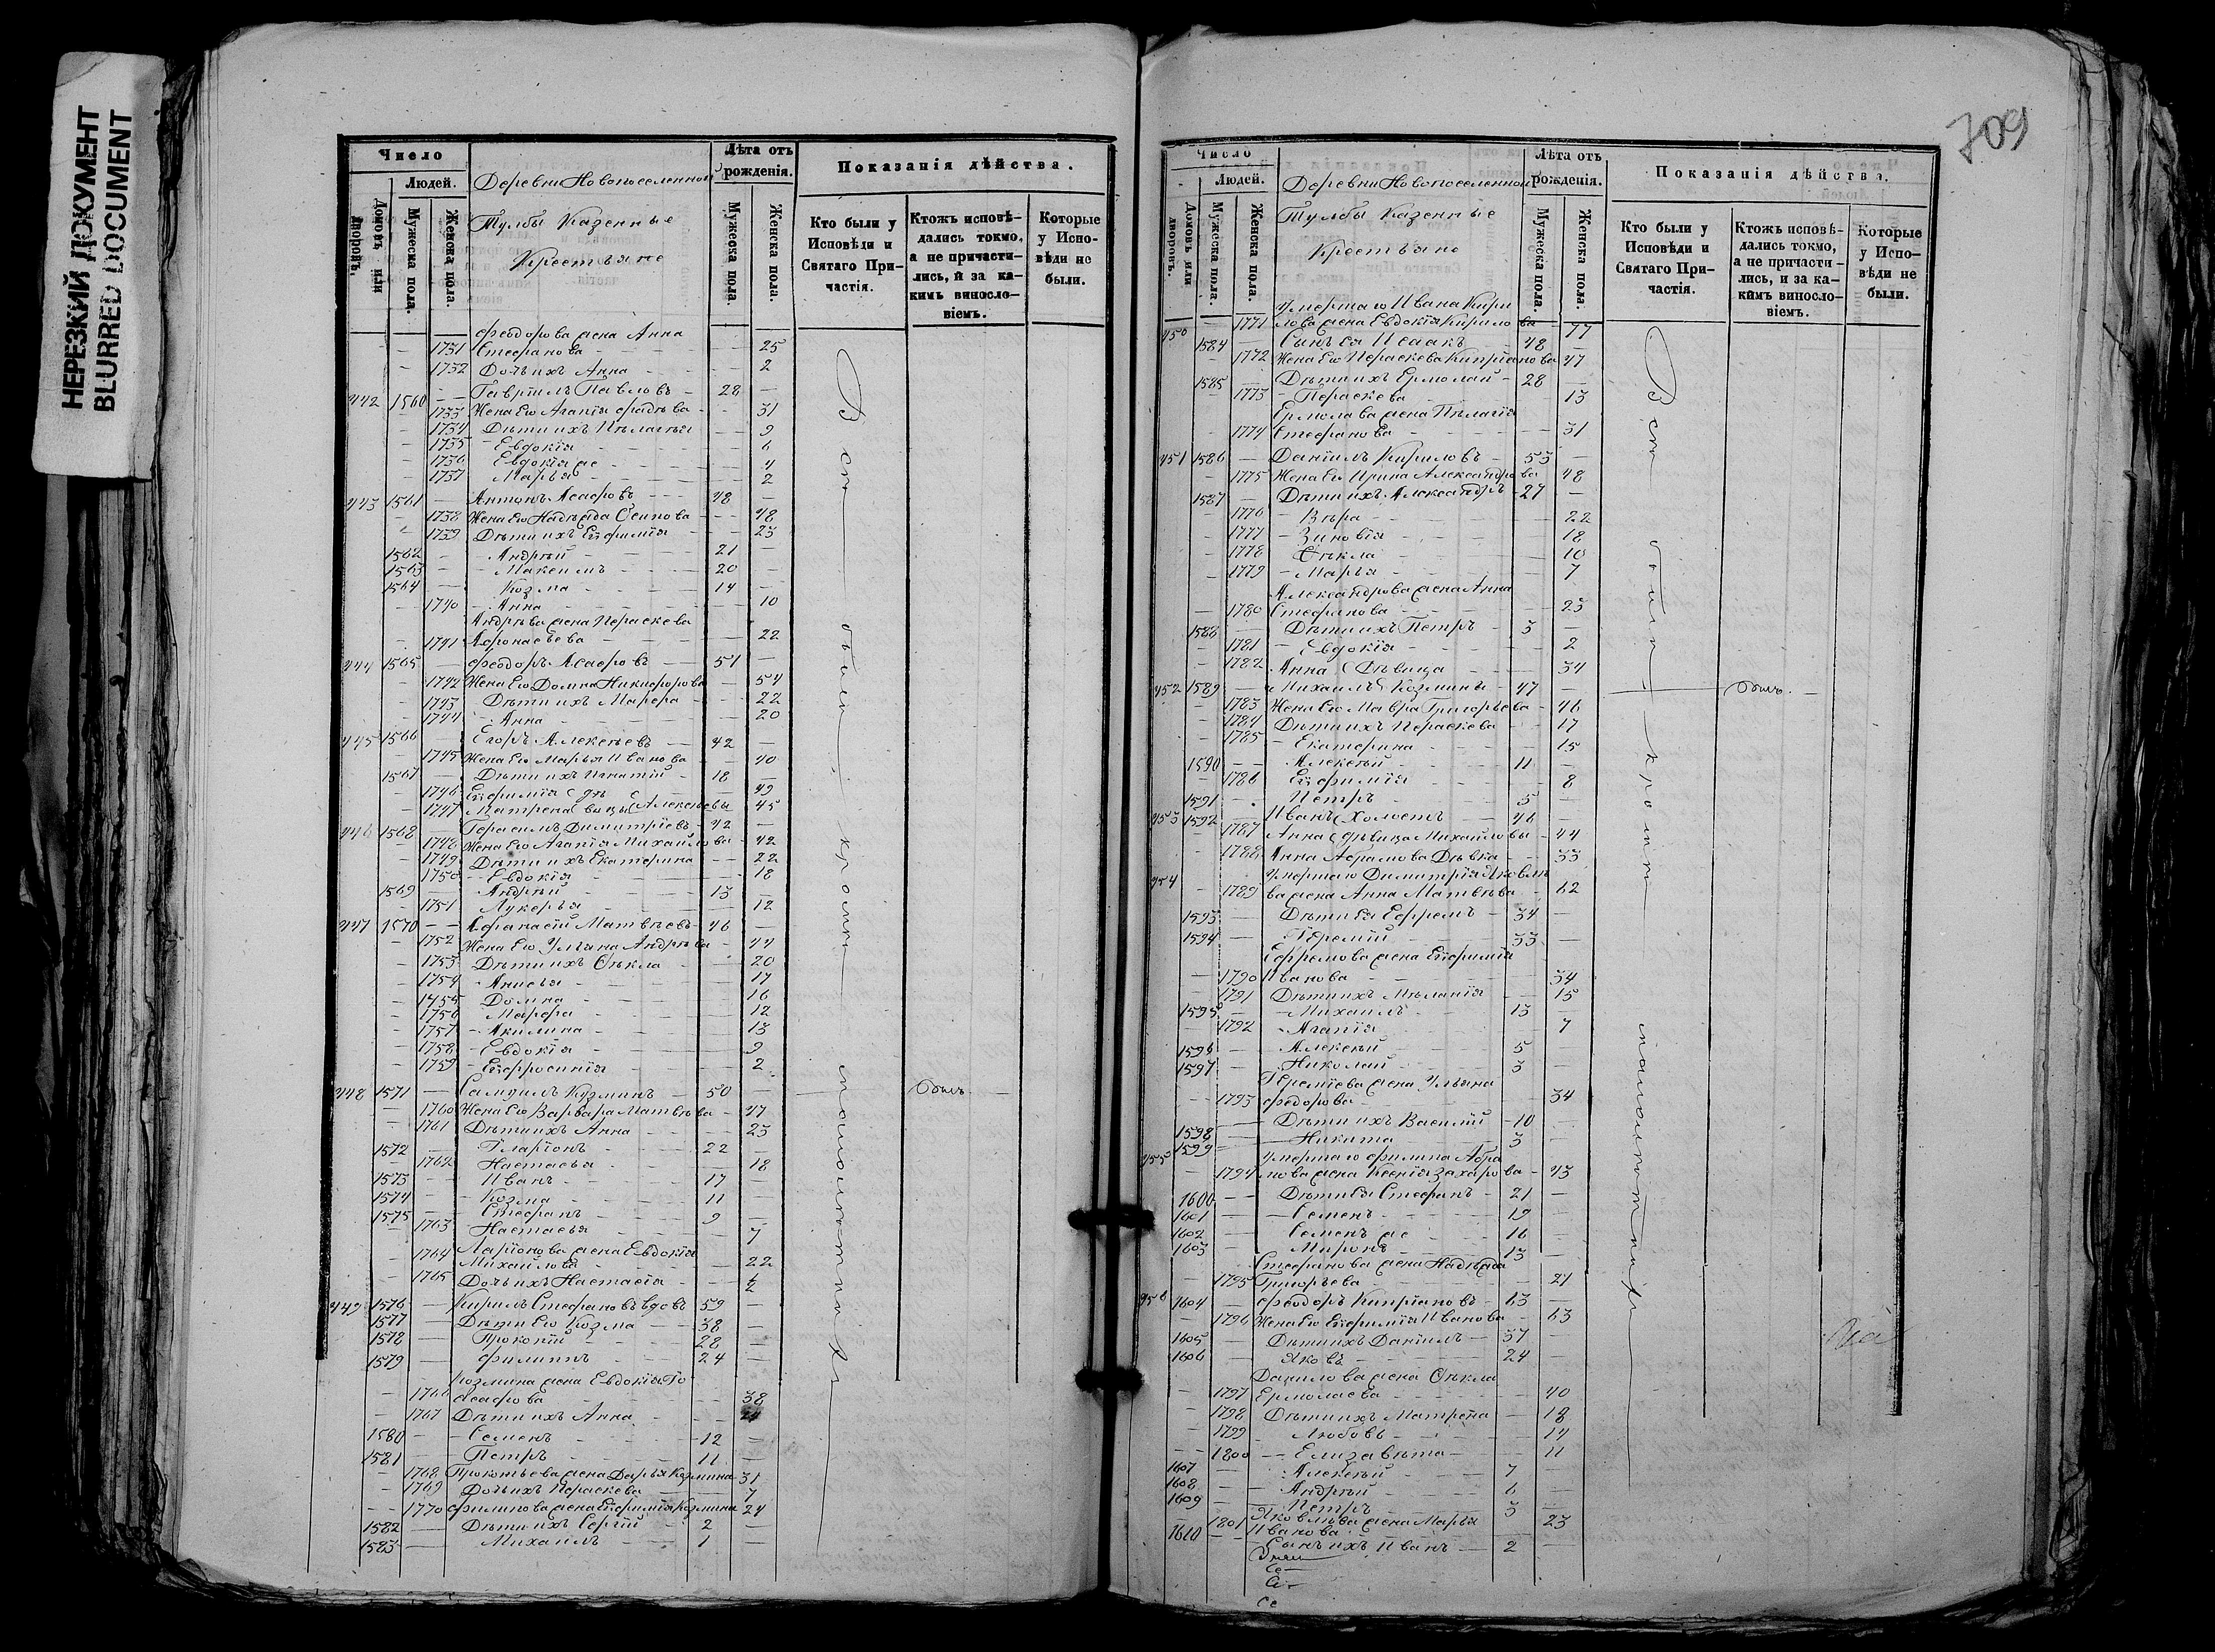 НЕРЕЗКИЙ ДОКУМЕНТ
BLURRED DOCUMENT
Число
Людей.
Домовъ или дворовъ.
Мужеска пола.
Женска пола.
Деревни Новопоселенной
Тулбы Казенные
Крестьяне
Лѣта отъ рожденія.
Мужеска пола.
Женска пола.
Показанія дѣйства.
Кто были у Исповѣди и Святаго Причастія.
Ктожъ исповѣдались токмо, а не причастились, и за какимъ винословіемъ.
Которые у Исповѣди не были.
Феодорова жена Анна
1731 Стефанова 25
1732 Дочь ихъ Анна 2
442 1560 Гавріилъ Павловъ 28
1733 Жена Его Агапія 31
1734 Дѣти ихъ Пелагія 9
1735 Евдокія 6
1736 Евдокія же 4
1737 Марья 2
443 1561 Антонъ Асафовъ 48
1738 Жена Его Надежда Осипова 48
1739 Дѣти ихъ Евфимія 23
1562 Андрей 21
1563 Максимъ 20
1564 Козма 14
1740 Анна 10
Андреева жена Параскева
1741 Афонасьева 22
444 1565 Феодоръ Асафовъ 51
1742 Жена Его Домна Никифорова 54
1743 Дѣти ихъ Марфа 22
1744 Анна 20
445 1566 Егоръ Алексѣевъ 42
1745 Жена Его Марья Иванова 40
1567 Дѣти ихъ Игнатій 18
1746 Евфимія (дѣ 49
1747 Матрена (вицы (Алексѣевы 45
446 1568 Герасимъ Димитріевъ 42
1748 Жена Его Агапія Михайлова 42
1749 Дѣти ихъ Екатерина 22
1750 Евдокія 18
1569 Андрей 13
1751 Лукерья 12
447 1570 Афанасій Матвѣевъ 46
1752 Жена Его Ульяна Андреева 44
1753 Дѣти ихъ Ѳекла 20
1754 Анисья 17
1755 Домна 16
1756 Марфа 12
1757 Акилина 13
1758 Евдокія 9
1759 Евфросинія 2
448 1571 Самуилъ Козминъ 50 Былъ
1760 Жена Его Варвара Матвѣева 47
1761 Дѣти ихъ Анна 23
1572 Іларіонъ 22
1762 Настасья 18
1573 Иванъ 17
1574 Козма 11
1575 Стефанъ 9
1763 Настасья 7
1764 Ларіонова жена Евдокія
Михайлова 22
1765 Дочь ихъ Настасія
449 1576 Кирилъ Стефановъ вдовъ 59
1577 Дѣти Его Козма 38
1578 Прокопій 28
1579 Филиппъ 24
Козмина жена Евдокія
1766 Асафова 38
1767 Дѣти ихъ Анна
1580 Семенъ 12
1581 Петръ 11
1768 Прокопьева жена Дарья Козмина 31
1769 Дочь ихъ Параскева 7
1770 Филипова жена Евфимія Козмина 24
1582 Дѣти ихъ Сергій 2
1583 Михаилъ 1
Всѣ были кромѣ малолѣтнихъ
709
Число
Людей.
Домовъ или дворовъ.
Мужеска пола.
Женска пола.
Деревни Новопоселенной
Тулбы Казенные
Крестьяне
Лѣта отъ рожденія.
Мужеска пола.
Женска пола.
Показанія дѣйства.
Кто были у Исповѣди и Святаго Причастія.
Ктожъ исповѣдались токмо, а не причастились, и за какимъ винословіемъ.
Которые у Исповѣди не были.
Умершаго Ивана Кири
450 1771 лова жена Евдокія Кирилова 77
1584 Сынъ Ея Исаакъ 48
1772 Жена Его Параскева Кипріанова 47
1585 Дѣти ихъ Ермолай 28
1773 Параскева 13
Ермолаева жена Пелагія
1774 Стефанова 31
451 1586 Даніилъ Кириловъ 53
1775 Жена Его Ирина Александрова 48
1587 Дѣти ихъ Александръ 27
1776 Вѣра 22
1777 Зиновія 18
1778 Ѳекла 10
1779 Марья 7
Александрова жена Анна
1780 Стефанова 23
1588 Дѣти ихъ Петръ 3
1781 Евдокія 2
1782 Анна (Дѣвица 34
452 1589 Михаилъ Козмины 47 Былъ
1783 Жена Его Мавра Григорьева 46
1784 Дѣти ихъ Параскева 17
1785 Екатерина 15
1590 Алексѣй 11
1786 Евфимія 8
1591 Петръ 5
453 1592 Иванъ (Холостъ 46
1787 Анна (дѣвица Михайловы 44
1788 Анна Абрамова Дѣвка 33
454 Умершаго Димитрія Яковле
1789 ва жена Анна Матвѣева 62
1593 Дѣти Ея Ефремъ 34
1594 Іеремій 33
Ефремова жена Евфимія
1790 Иванова 34
1791 Дѣти ихъ Меланія 15
1595 Михаилъ 13
1792 Агапія 7
1596 Алексѣй 5
1597 Николай 3
Іереміева жена Ульяна
1793 Федорова 34
1598 Дѣти ихъ Василій 10
1599 Никита 3
455 Умершаго Филипа Абра
1794 мова жена Ксенія Захарова 43
1600 Дѣти Ея Стефанъ 21
1601 Семенъ 19
1602 Семенъ же 16
1603 Миронъ 13
Стефанова жена Надежда
1795 Григорьева 21
456 1604 Феодоръ Кипріановъ 63
1796 Жена Его Евфимія Иванова 63
1605 Дѣти ихъ Даніилъ 37
1606 Яковъ 24
Данилова жена Ѳекла
1797 Ермолаева 40
1798 Дѣти ихъ Матрена 18
1799 Любовь 14
1800 Елизавета 11
1607 Алексѣй 7
1608 Андрей 6
1609 Петръ 3
1801 Яковлева жена Марья 23
Иванова
1610 Сынъ ихъ Иванъ 2
Всѣ были кромѣ малолѣтнихъ